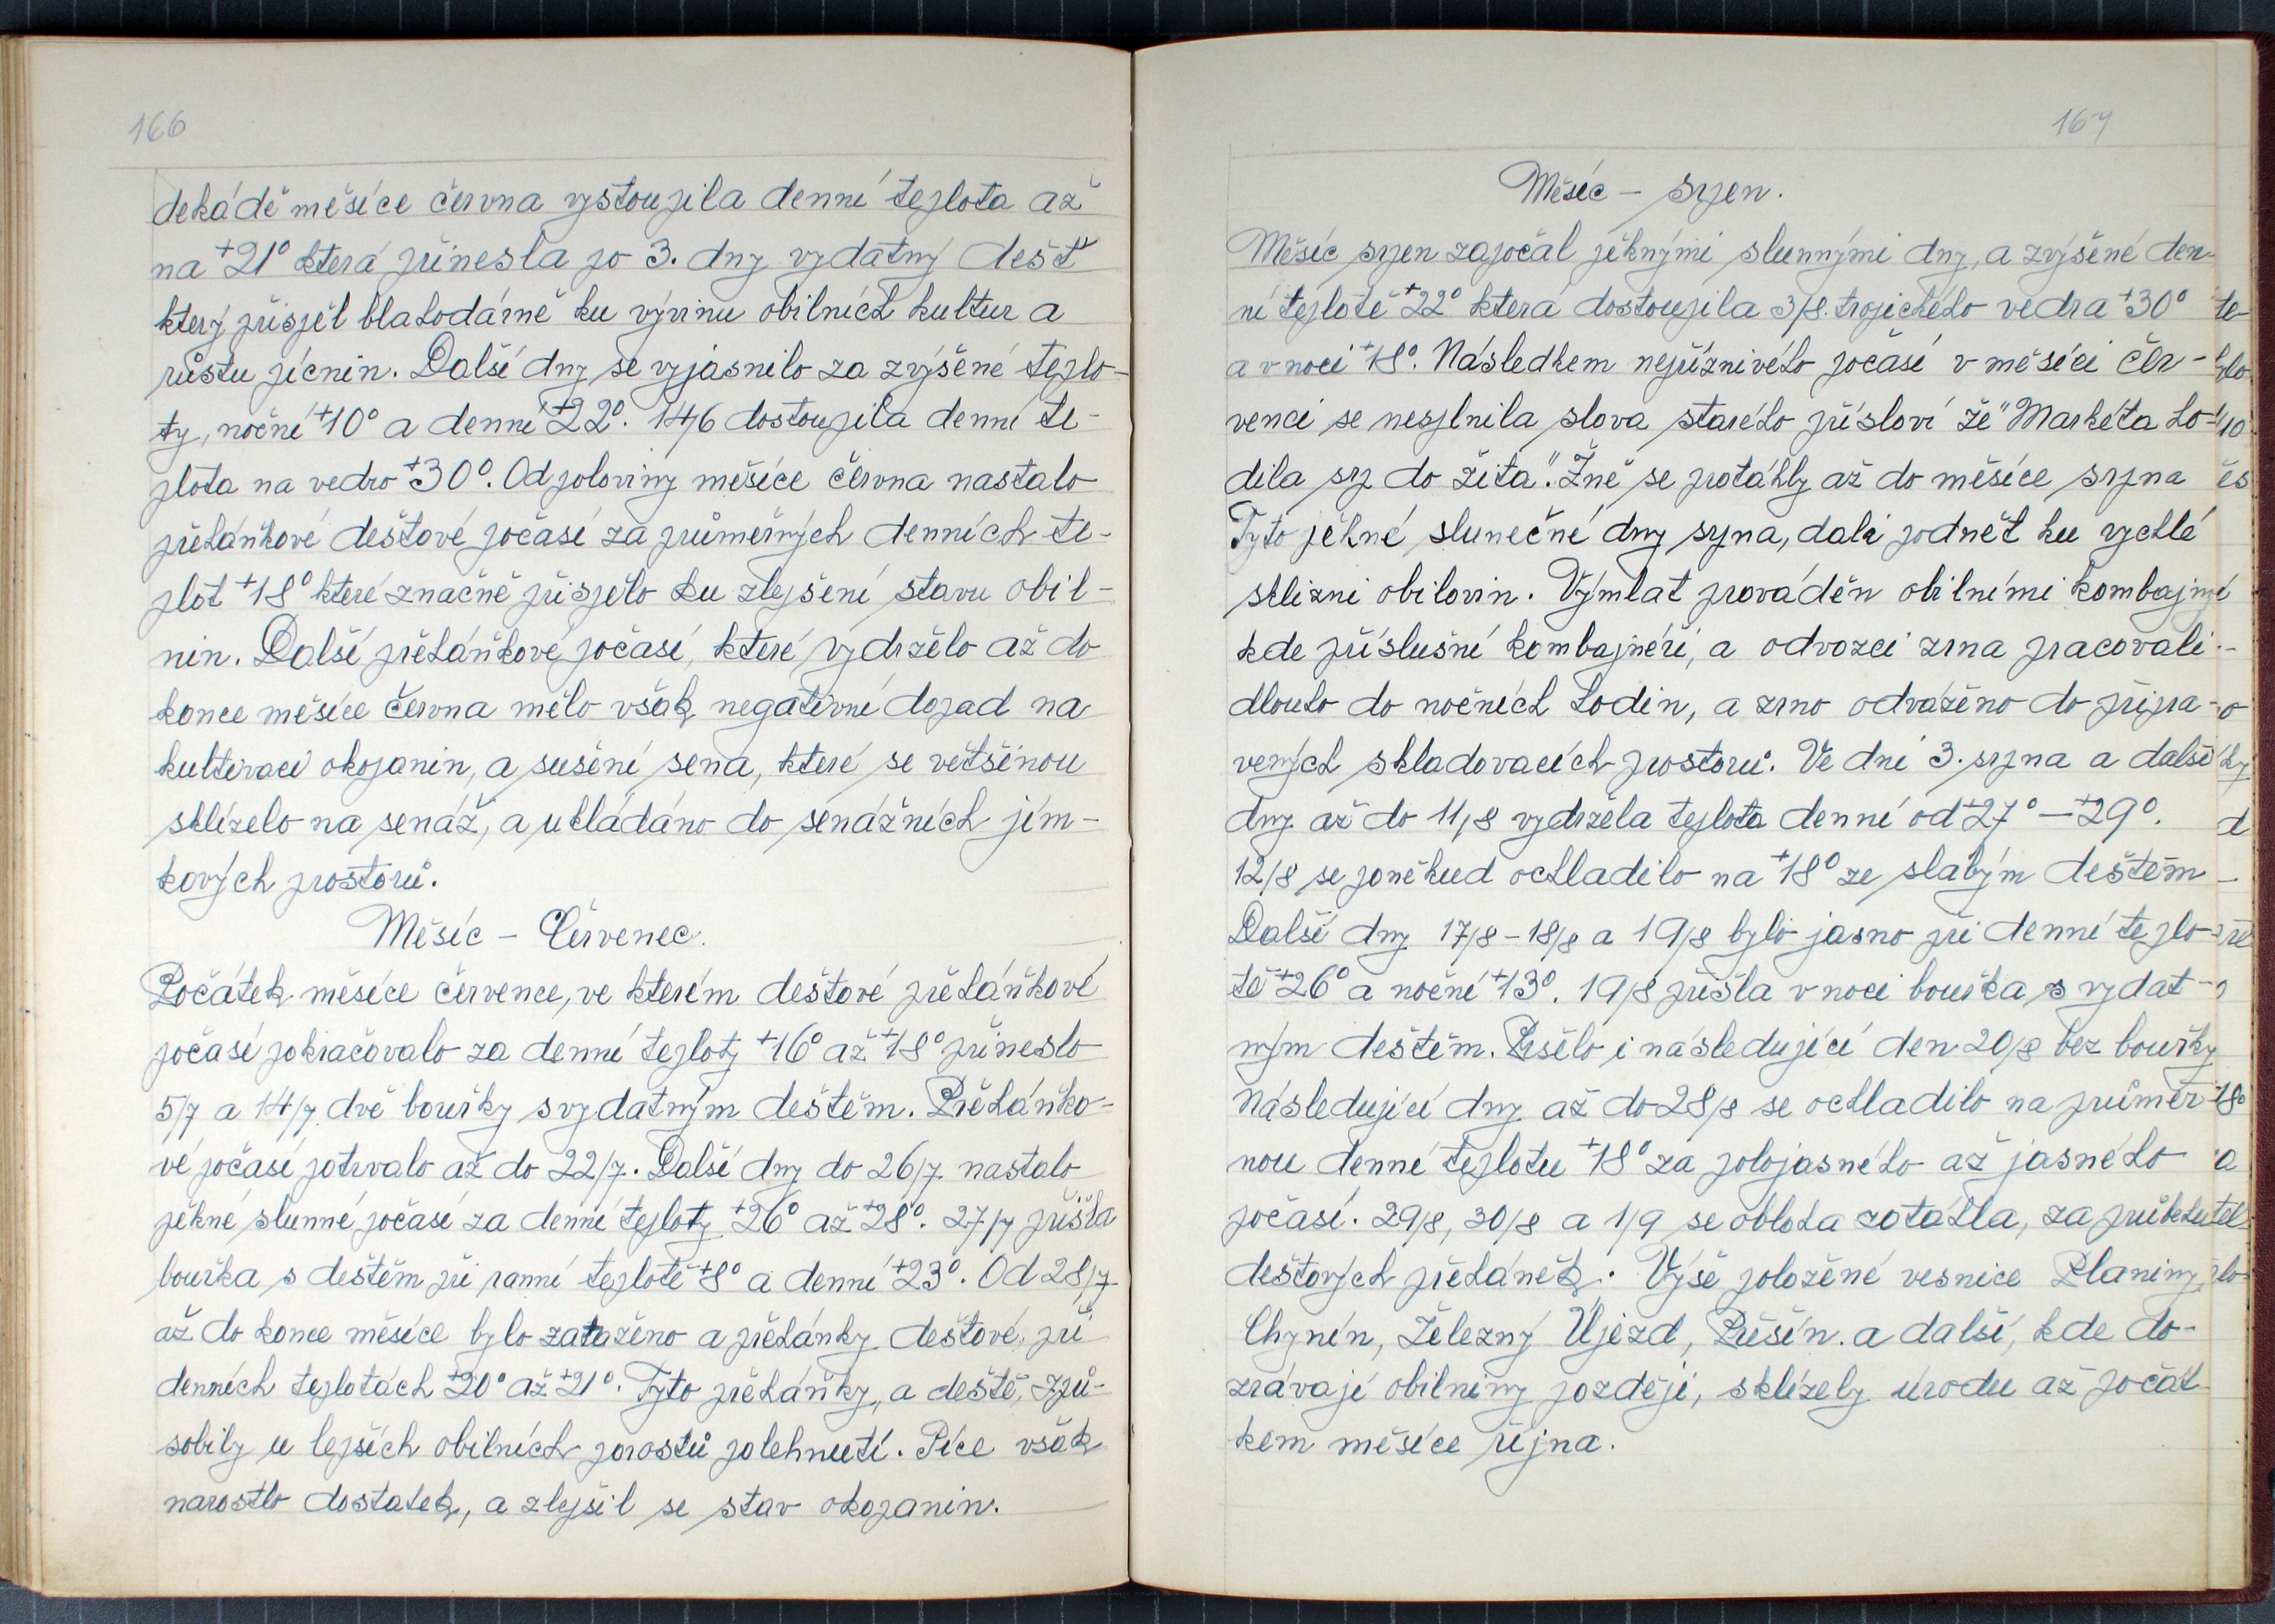 166
dekádě měsíce června vystoupila denní teplota až
na +21° která přinesla po 3. dny vydatný déšť
který přispěl blahodárně ku vývinu obilních kultur a
růstu pícnin. Další dny se vyjasnilo za zvýšené teplo-
ty, noční +10° a denní +22°. 14/6 dostoupila denní te-
plota na vedro +30°. Od poloviny měsíce června nastalo
přeháňkové dešťové počasí za průměrných denních te-
plot +18° které značně přispělo ku zlepšení stavu obil-
nin. Další přeháňkové počasí, které vydrželo až do
konce měsíce června mělo však negativní dopad na
kultivaci okopanin, a sušení sena, které se většinou
sklízelo na senáž, a ukládáno do senážních jím-
kových prostorů.
Měsíc - Červenec.
Počátek měsíce července, ve kterém dešťové přeháňkové
počasí pokračovalo za denní teploty +16° až +18° přineslo
5/7 a 14/7 dvě bouřky s vydatným deštěm. Přeháňko-
vé počasí potrvalo až do 22/7. Další dny do 26/7 nastalo
pěkné slunné počasí za denní teploty +26° až +28°. 27/7 přišla
bouřka s deštěm při ranní teplotě +8° a denní +23°. Od 28/7
až do konce měsíce bylo zataženo a přeháňky dešťové, při
denních teplotách +20° až +21°. Tyto přeháňky, a deště, způ-
sobily u lepších obilních porostů polehnutí. Píce však
narostlo dostatek, a zlepšil se stav okopanin.
167
Měsíc - srpen.
Měsíc srpen započal pěknými slunnými dny, a zvýšené den-
ní teplotě +22° která dostoupila 3/8. tropického vedra +30°
a v noci +18°. Následkem nepříznivého počasí v měsíci čer-
venci se nesplnila slova starého přísloví že "Markéta ho-
dila srp do žita". Žně se protáhly až do měsíce srpna
Tyto pěkné slunečné dny srpna, dali podnět ku rychlé
sklizni obilovin. Výmlat prováděn obilními kombajny
kde příslušní kombajnéři, a odvozci zrna pracovali
dlouho do nočních hodin, a zrno odváženo do připra-
vených skladovacích prostorů. Ve dni 3. srpna a další
dny až do 11/8 vydržela teplota denní od +27° - +29°.
12/8 se poněkud ochladilo na +18° ze slabým deštěm
Další dny 17/8 - 18/8 a 19/8 bylo jasno při denní teplo-
tě +26° a noční +13°. 19/8 přišla v noci bouřka s vydat-
ným deštěm. Pršelo i následující den 20/8 bez bouřky
Následující dny až do 28/8 se ochladilo na průměr-
nou denní teplotu +18° za polojasného až jasného
počasí. 29/8, 30/8 a 1/9 se obloha zatáhla, za průběhu
dešťových přeháněk. Výše položené vesnice Planiny,
Chynín, Železný Újezd, Přešín. a další, kde do-
zrávají obilniny později, sklízely úrodu až počát-
kem měsíce října.